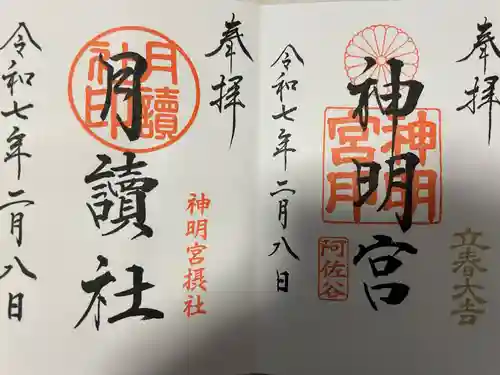 奉拝
立春大吉
神明宮
神明宮印
阿佐谷
令和七年二月八日
奉拝
神明宮摂社
月讀社
月讀社印
令和七年二月八日